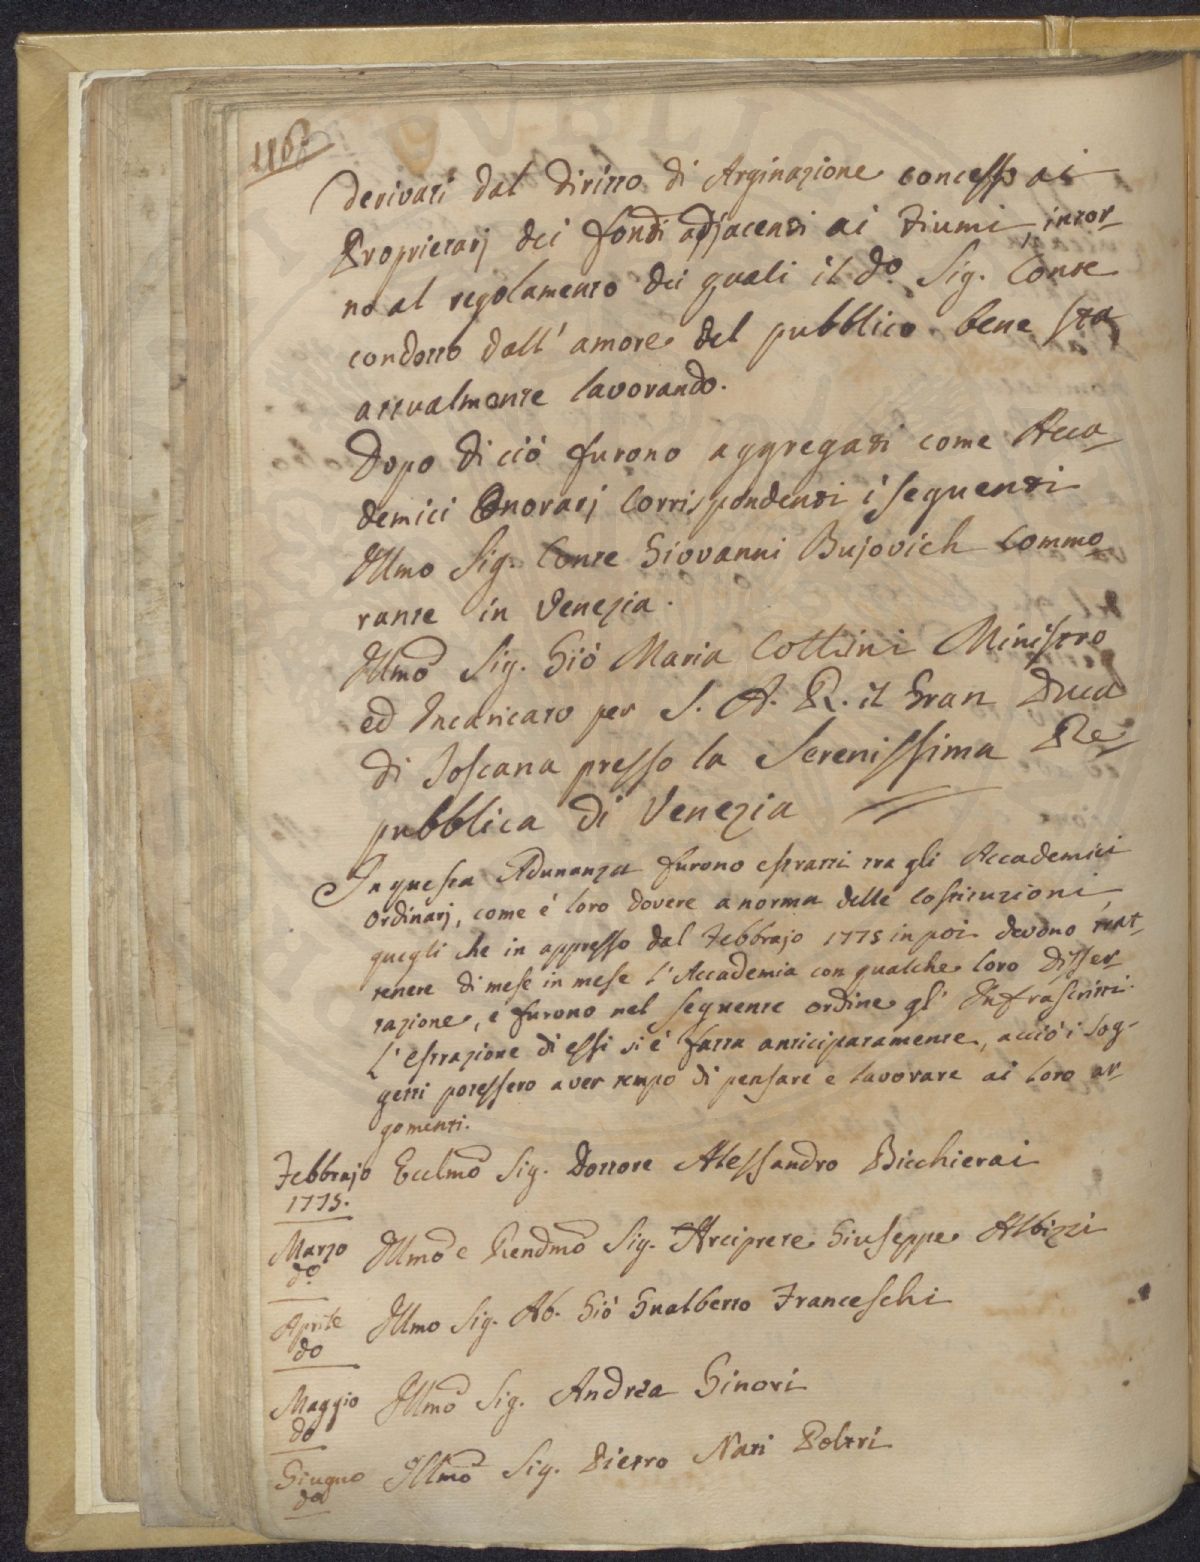 116
derivati dal diritto di Arginazione concesso ai
Proprietarj dei fondi adjacenti ai Fiumi, intor-
no al regolamento dei quali il do. Sig. Conte
condotto dall' amore del pubblico bene sta
attualmente lavorando.
Dopo di ciò furono aggregati come Acca-
demici Onorarj Corrispondenti i seguenti
Illmo Sig. Conte Giovanni Bujovich Commo-
rante in Venezia.
Illmo Sig. Giò Maria Collini Ministro
ed Incaricato per S. A. R. il Gran Duca
di Toscana presso la Serenissima Re-
pubblica di Venezia
In questa Adunanza furono estratti tra gli Accademici
Ordinarj, come è loro dovere a norma delle Costituzioni,
quegli che in appresso dal Febbrajo 1775 in poi devono trat-
tenere di mese in mese l'Accademia con qualche loro Disser-
tazione, e furono nel seguente ordine gl' Infrascritti.
L'estrazione di essi si è fatta anticipatamente, acciò i sog-
getti potessero aver tempo di pensare e lavorare ai loro ar-
gomenti.
Febbrajo Ecclmo Sig. Dottore Alessandro Bicchierai
1775.
Marzo Illmo e Rendmo Sig. Arciprete Giuseppe Albizzi
do.
Aprile Illmo Sig. Ab. Giò Gualberto Franceschi
do
Maggio Illmo Sig. Andrea Ginori
do
Giugno Illmo Sig. Pietro Nati Poltri
do